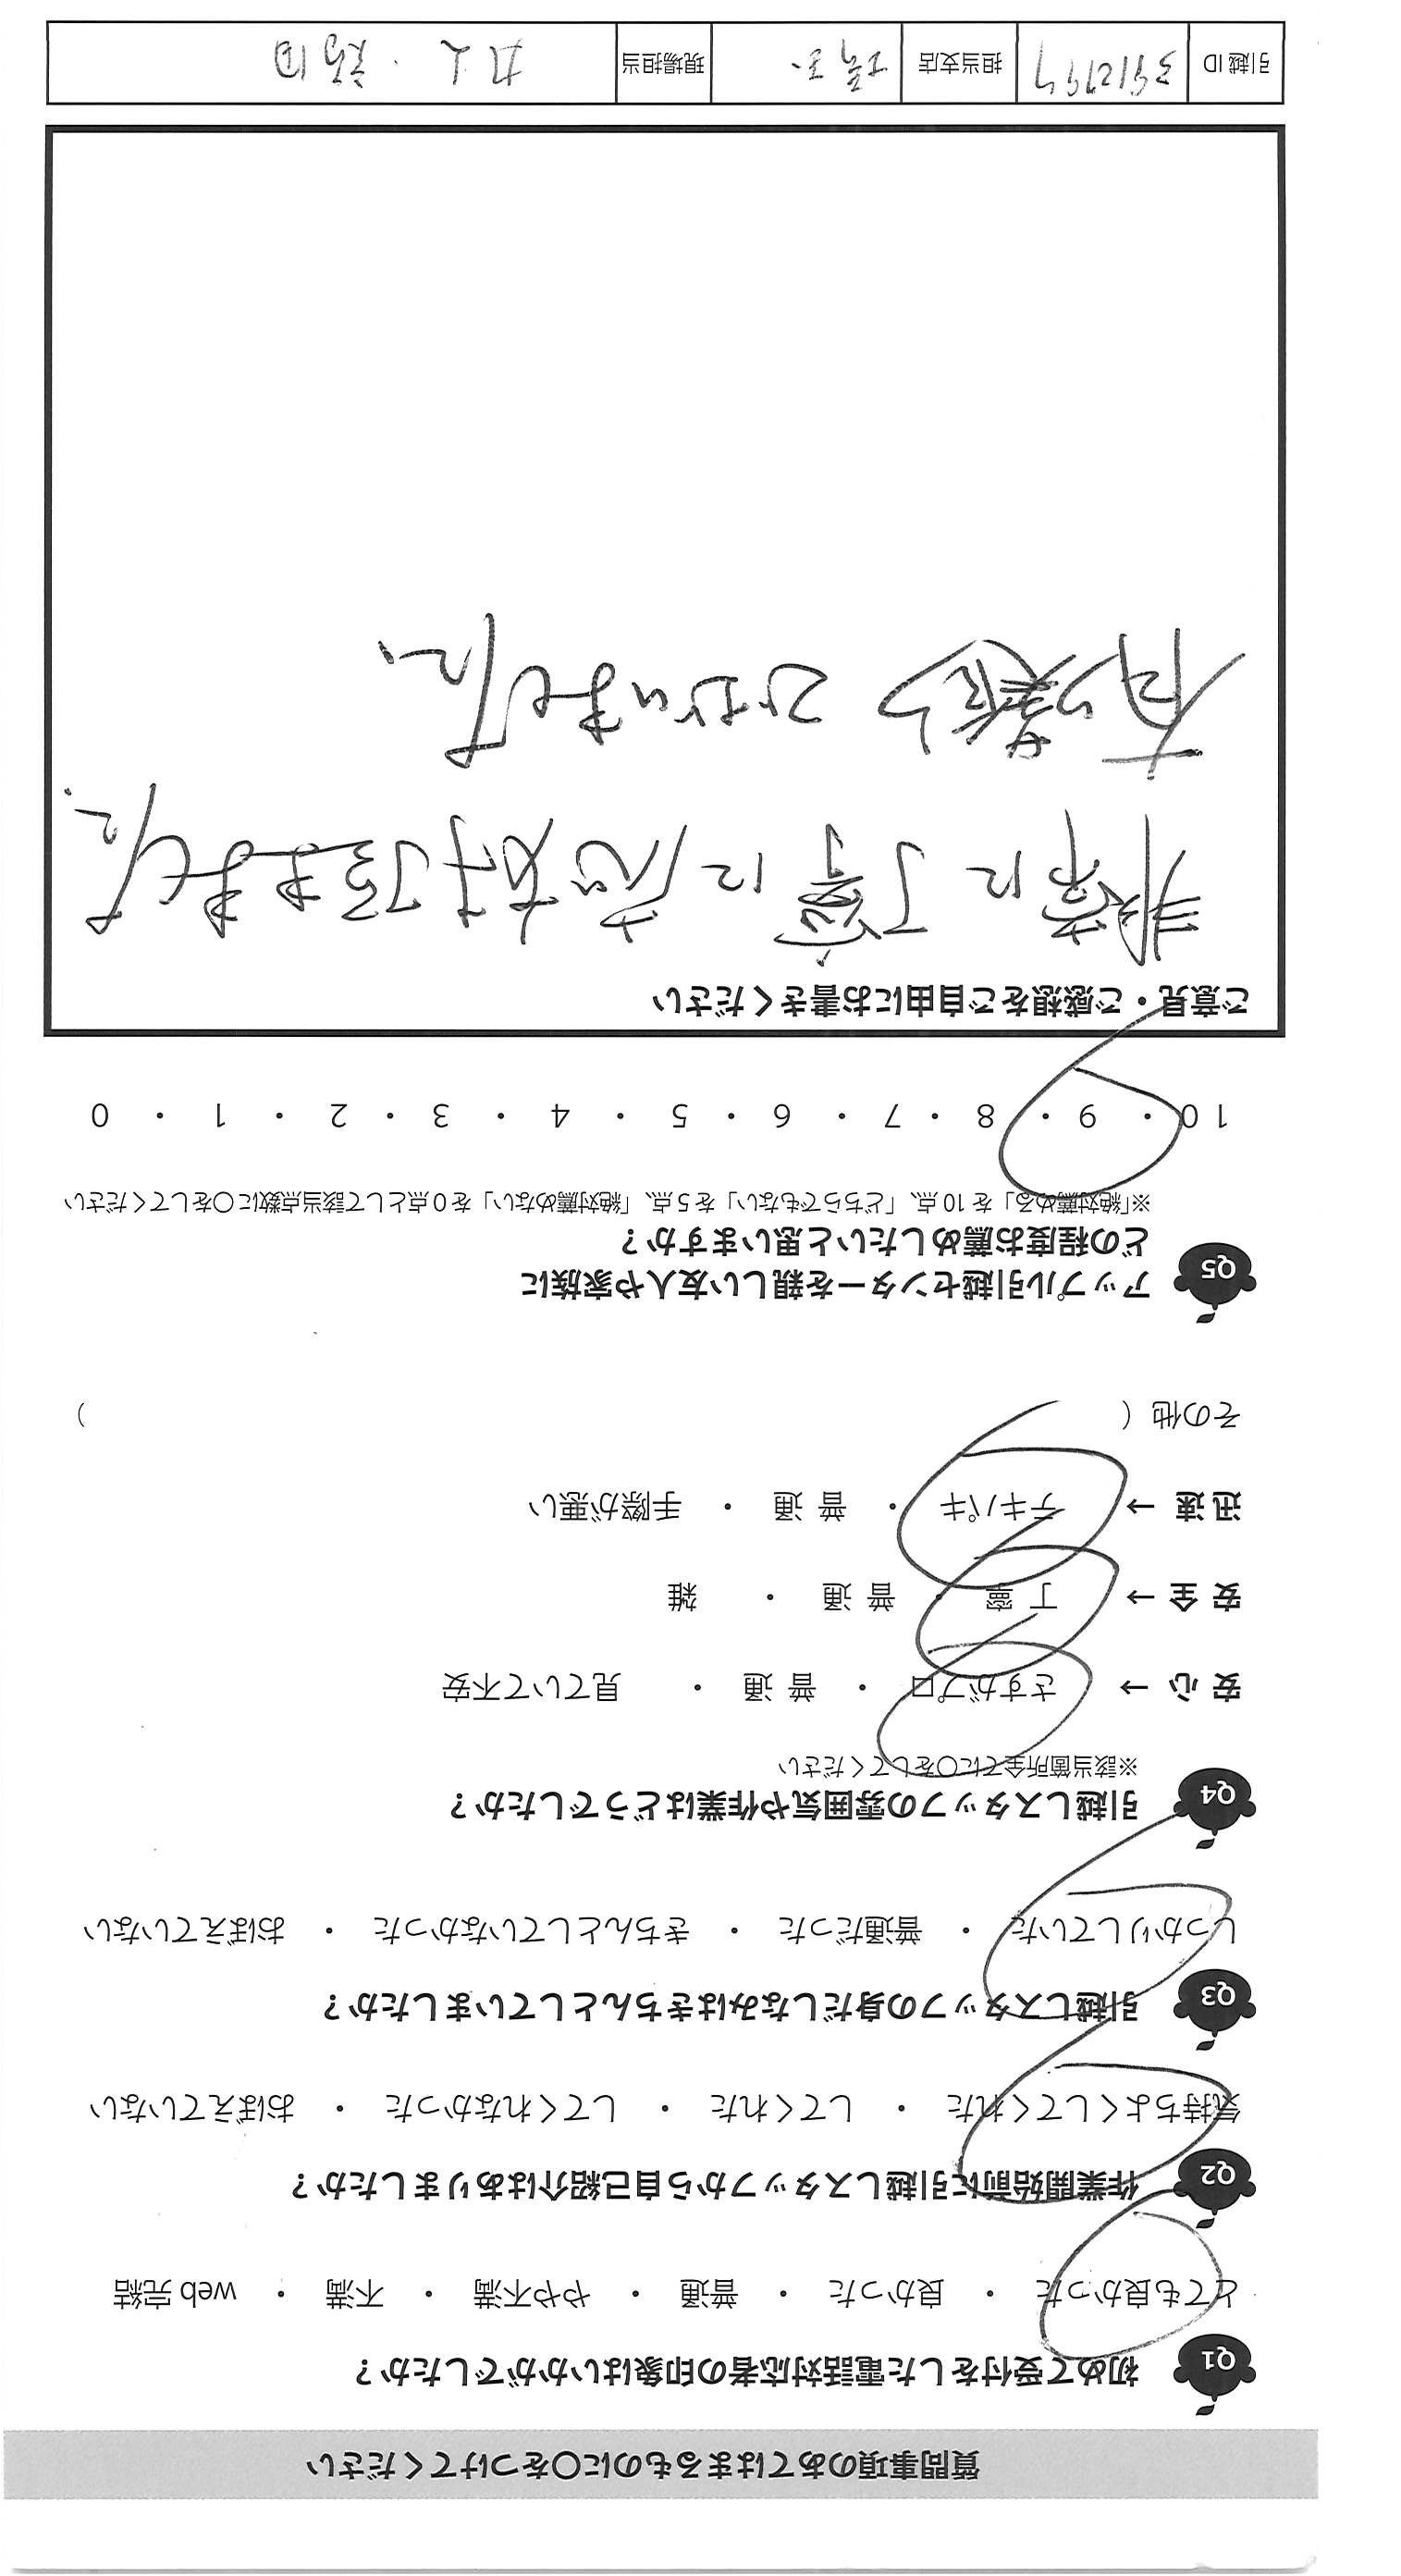 質問事項のあてはまるものに〇をつけてください
Q1 初めて受付をした電話対応者の印象はいかがでしたか？
とても良かった ・ 良かった ・ 普通 ・ やや不満 ・ 不満 ・ web 完結
Q2 作業開始前に引越しスタッフから自己紹介はありましたか？
気持ちよくしてくれた ・ してくれた ・ してくれなかった ・ おぼえていない
Q3 引越しスタッフの身だしなみはきちんとしていましたか？
しっかりしていた ・ 普通だった ・ きちんとしていなかった ・ おぼえていない
Q4 引越しスタッフの雰囲気や作業はどうでしたか？
※該当箇所全てに〇をしてください
安 心 → さすがプロ ・ 普 通 ・ 見ていて不安
安 全 → 丁 寧 ・ 普 通 ・ 雑
迅 速 → テキパキ ・ 普 通 ・ 手際が悪い
その他 （ ）
Q5 アップル引越センターを親しい友人や家族に
どの程度お薦めしたいと思いますか？
※「絶対薦める」を 10 点、「どちらでもない」を 5 点、「絶対薦めない」を 0 点として該当点数に〇をしてください
10 ・ 9 ・ 8 ・ 7 ・ 6 ・ 5 ・ 4 ・ 3 ・ 2 ・ 1 ・ 0
ご意見・ご感想をご自由にお書きください
非常に丁寧に応対頂きました。
有り難うございました。
引越 ID 3912797 担当支店 埼玉 現場担当